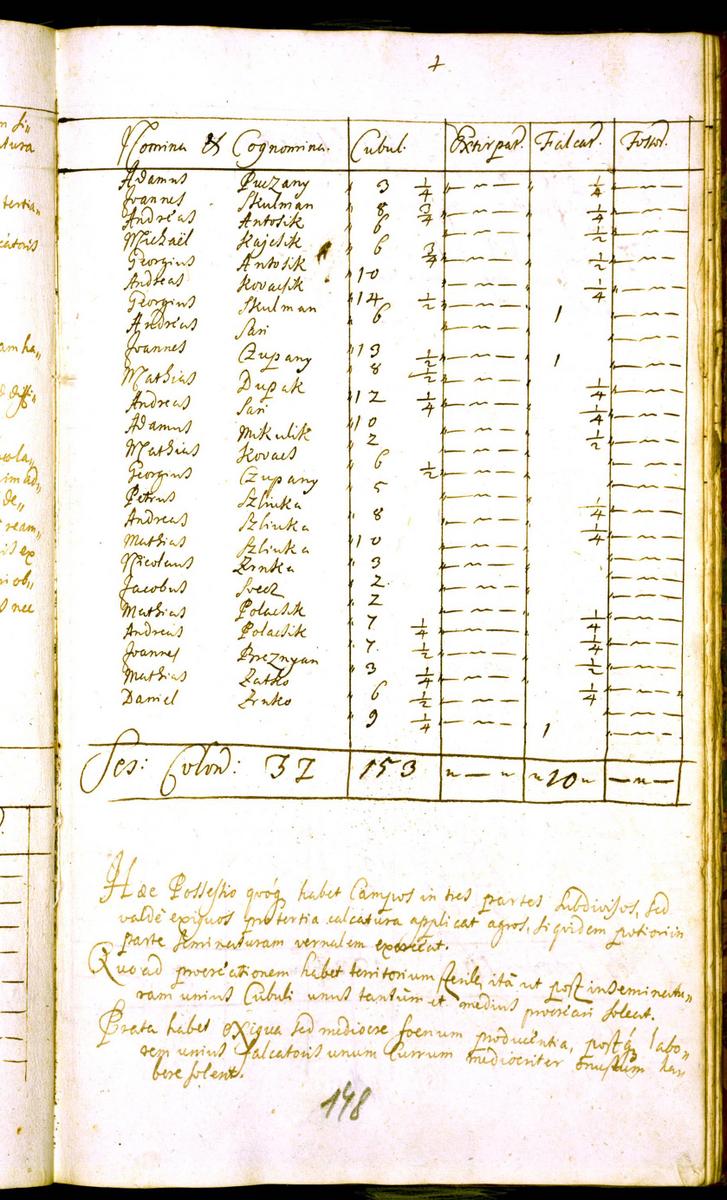 Nomina & Cognomina. Cubul. Extirpat. Falcat. Fossor.
Adamus Puczany 3 1/4 1/4
Joannes Skulman 8 3/4 1/4
Andreas Antosik 6 1/2
Michaël Kajcsik 6 3/4 1/2
Georgius Antosik 10
Andreas Kovacsik 14 1/2 1/4
Georgius Skulman 6 1
Andreas Sari
Joannes Czupany 13 1/2 1
Mathias Dupak 8 1/2
Andreas Sari 12 1/4 1/4
Adamus Mikulik 10 1/4
Mathias Kovacs 2 1/2
Georgius Czupany 6 1/2
Petrus Szliuka 5
Andreas Szliuka 8 1/4
Mathias Szliuka 10 1/4
Nicolaus Zrnka 3
Jacobus Svecz 2
Mathias Polacsik 2
Andreas Polacsik 7 1/4 1/4
Joannes Breznyan 7 1/2 1/4
Mathias Zatko 3 1/4 1/2
Daniel Zrnko 6 1/2 1/4
9 1/4 1
Ses: Colon: 37 153 10
Hae Possessio quoq habet Campos in tres partes subdivisos, sed
valdè exiguos pro tertia calcatura applicat agros, siquidem potiori in
parte seminaturam vernalem exerceat.
Quoad procreationem habet territorium sterile, ità ut post inseminatu-
ram unius Cubuli unus tantùm et medius procreari soleat.
Prata habet exigua sed mediocre foenum producentia, postq labo-
rem unius Falcatoris unum Currum mediocriter onustum ha-
bere solent.
148